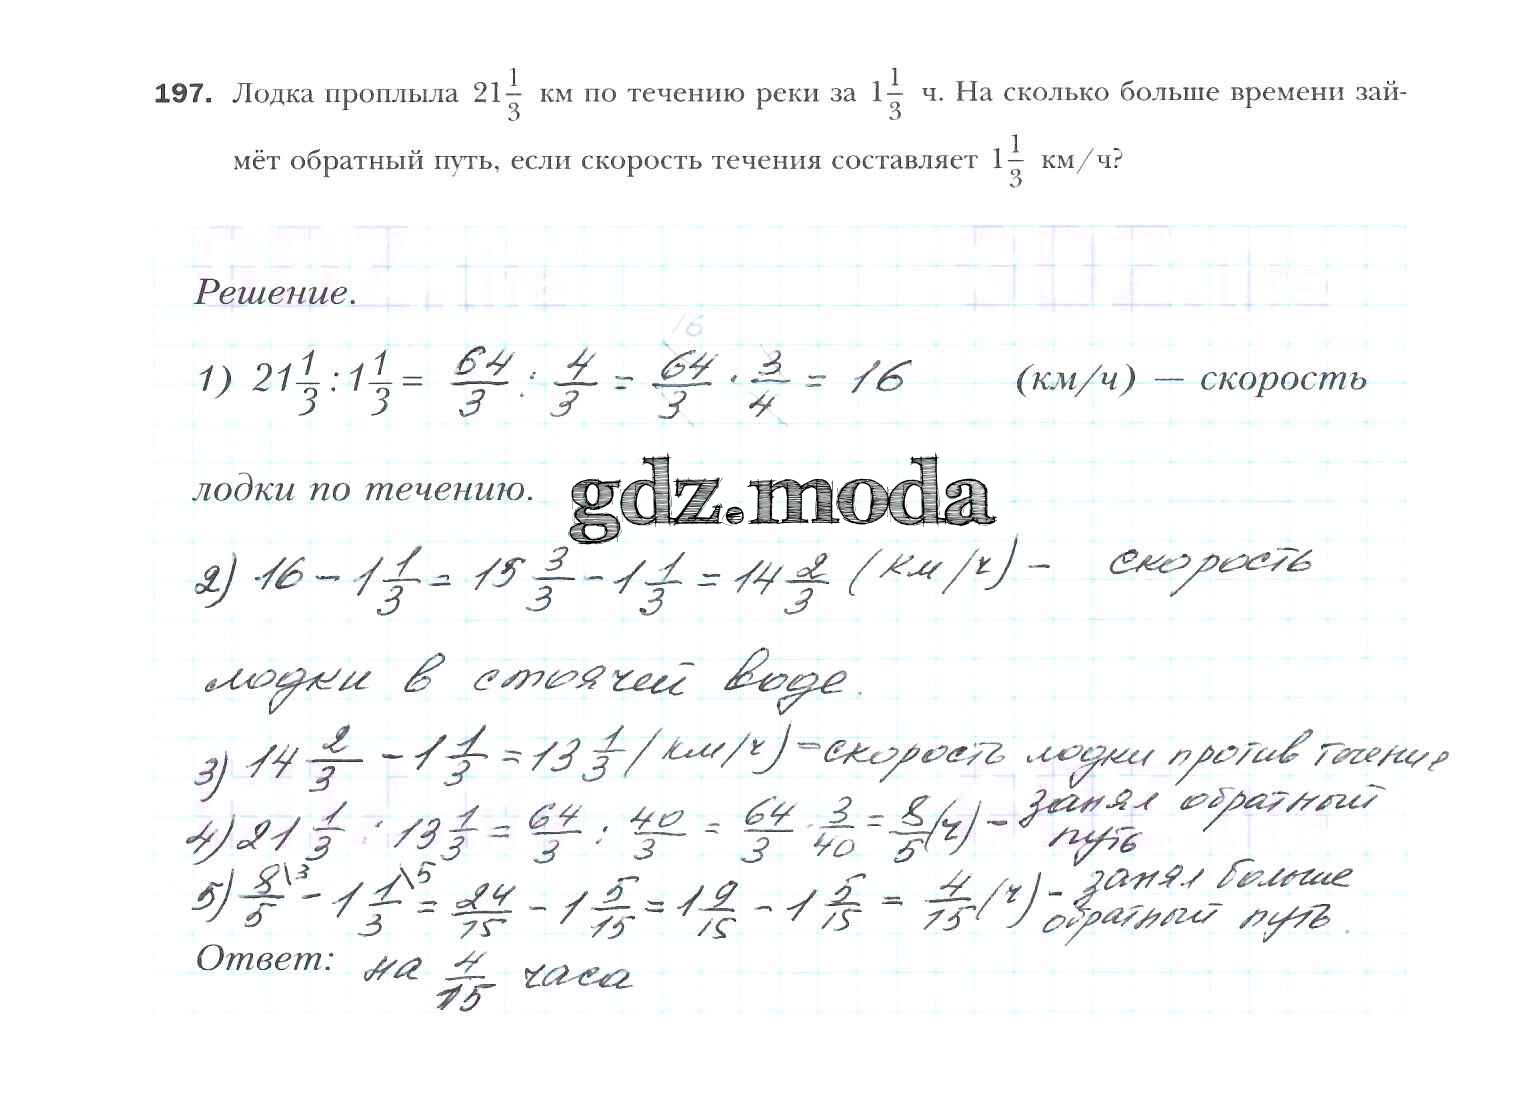 197. Лодка проплыла 21 1/3 км по течению реки за 1 1/3 ч. На сколько больше времени зай-
мёт обратный путь, если скорость течения составляет 1 1/3 км/ч?
Решение.
16
1) 21 1/3 : 1 1/3 = 64/3 : 4/3 = 64/3 · 3/4 = 16 (км/ч) — скорость
лодки по течению.
gdz.moda
2) 16 - 1 1/3 = 15 3/3 - 1 1/3 = 14 2/3 (км/ч) - скорость
лодки в стоячей воде.
3) 14 2/3 - 1 1/3 = 13 1/3 (км/ч) - скорость лодки против течение
4) 21 1/3 : 13 1/3 = 64/3 : 40/3 = 64/3 · 3/40 = 8/5 (ч) - занял обратный
путь
5) 8/5 \3 - 1 1/3 \5 = 24/15 - 1 5/15 = 1 9/15 - 1 5/15 = 4/15 (ч) - занял больше
обратный путь.
Ответ: на 4/15 часа